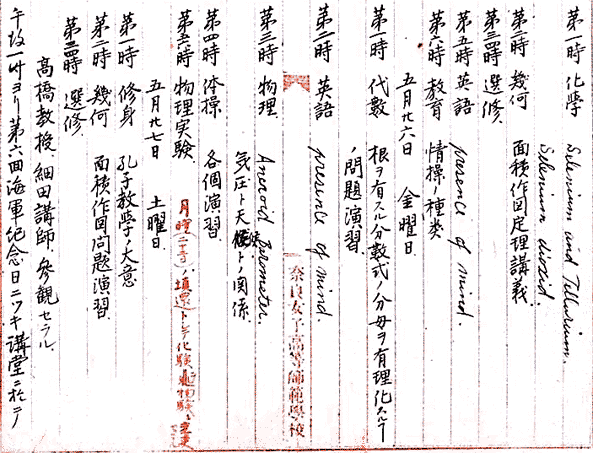 第一時 化學 Selenium and Tellurium.
Selenium dioxid.
第二時 幾何 面積作図定理講義
第三四時 選修.
第五時 英語 presence of mind.
第六時 教育 情操ノ種類
五月廿六日 金曜日
第一時 代數 根ヲ有スル分數式ノ分母ヲ有理化スルノ
問題演習.
第二時 英語 presence of mind.
奈良女子高等師範學校
第三時 物理. Aneroid Barometer.
気圧ト天候トノ関係
第四時 体操 各個演習
第五時 物理実験
五月廿七日 土曜日
第一時 修身 孔子教學ノ大意
第二時 幾何 面積作図問題演習
第三四時 選修.
高橋教授、細田講師、参観セラル
午後一時ヨリ第六回海軍紀念日ニツキ講堂ニ於テ